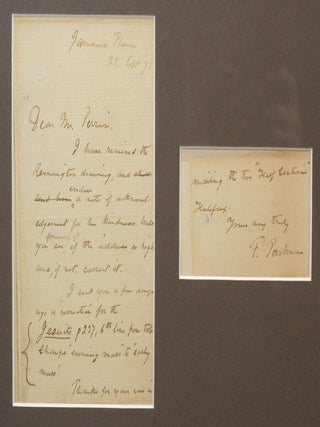 Jamaica Plain
22 Sept 91
Dear Mr. Perrin,
I have received the
Remmington drawing, and
enclose
a note of acknowl-
edgement for his kindness. Will
you see if the address is right
and, if not, correct it.
I sent you a few days
ago a correction for the
Jesuits p 237, 6th line from top
change "evening mass" to "early
mass".
Thanks for your care in
mailing the two "Half Centuries"
Halifax.
Yours very truly
F. Parkman